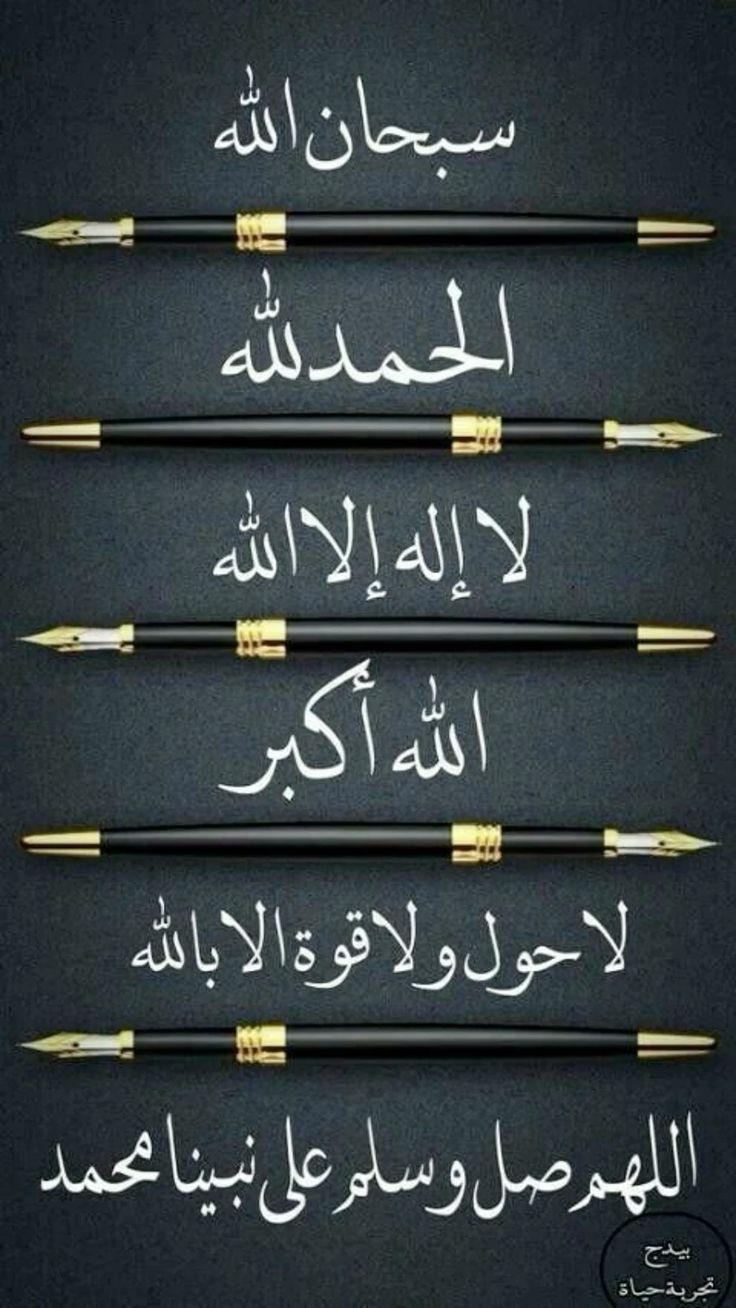 سبحان الله
الحمد لله
لا إله إلا الله
الله أكبر
لا حول ولا قوة الا بالله
اللهم صل وسلم على نبينا محمد
بيدج
تجربة حياة